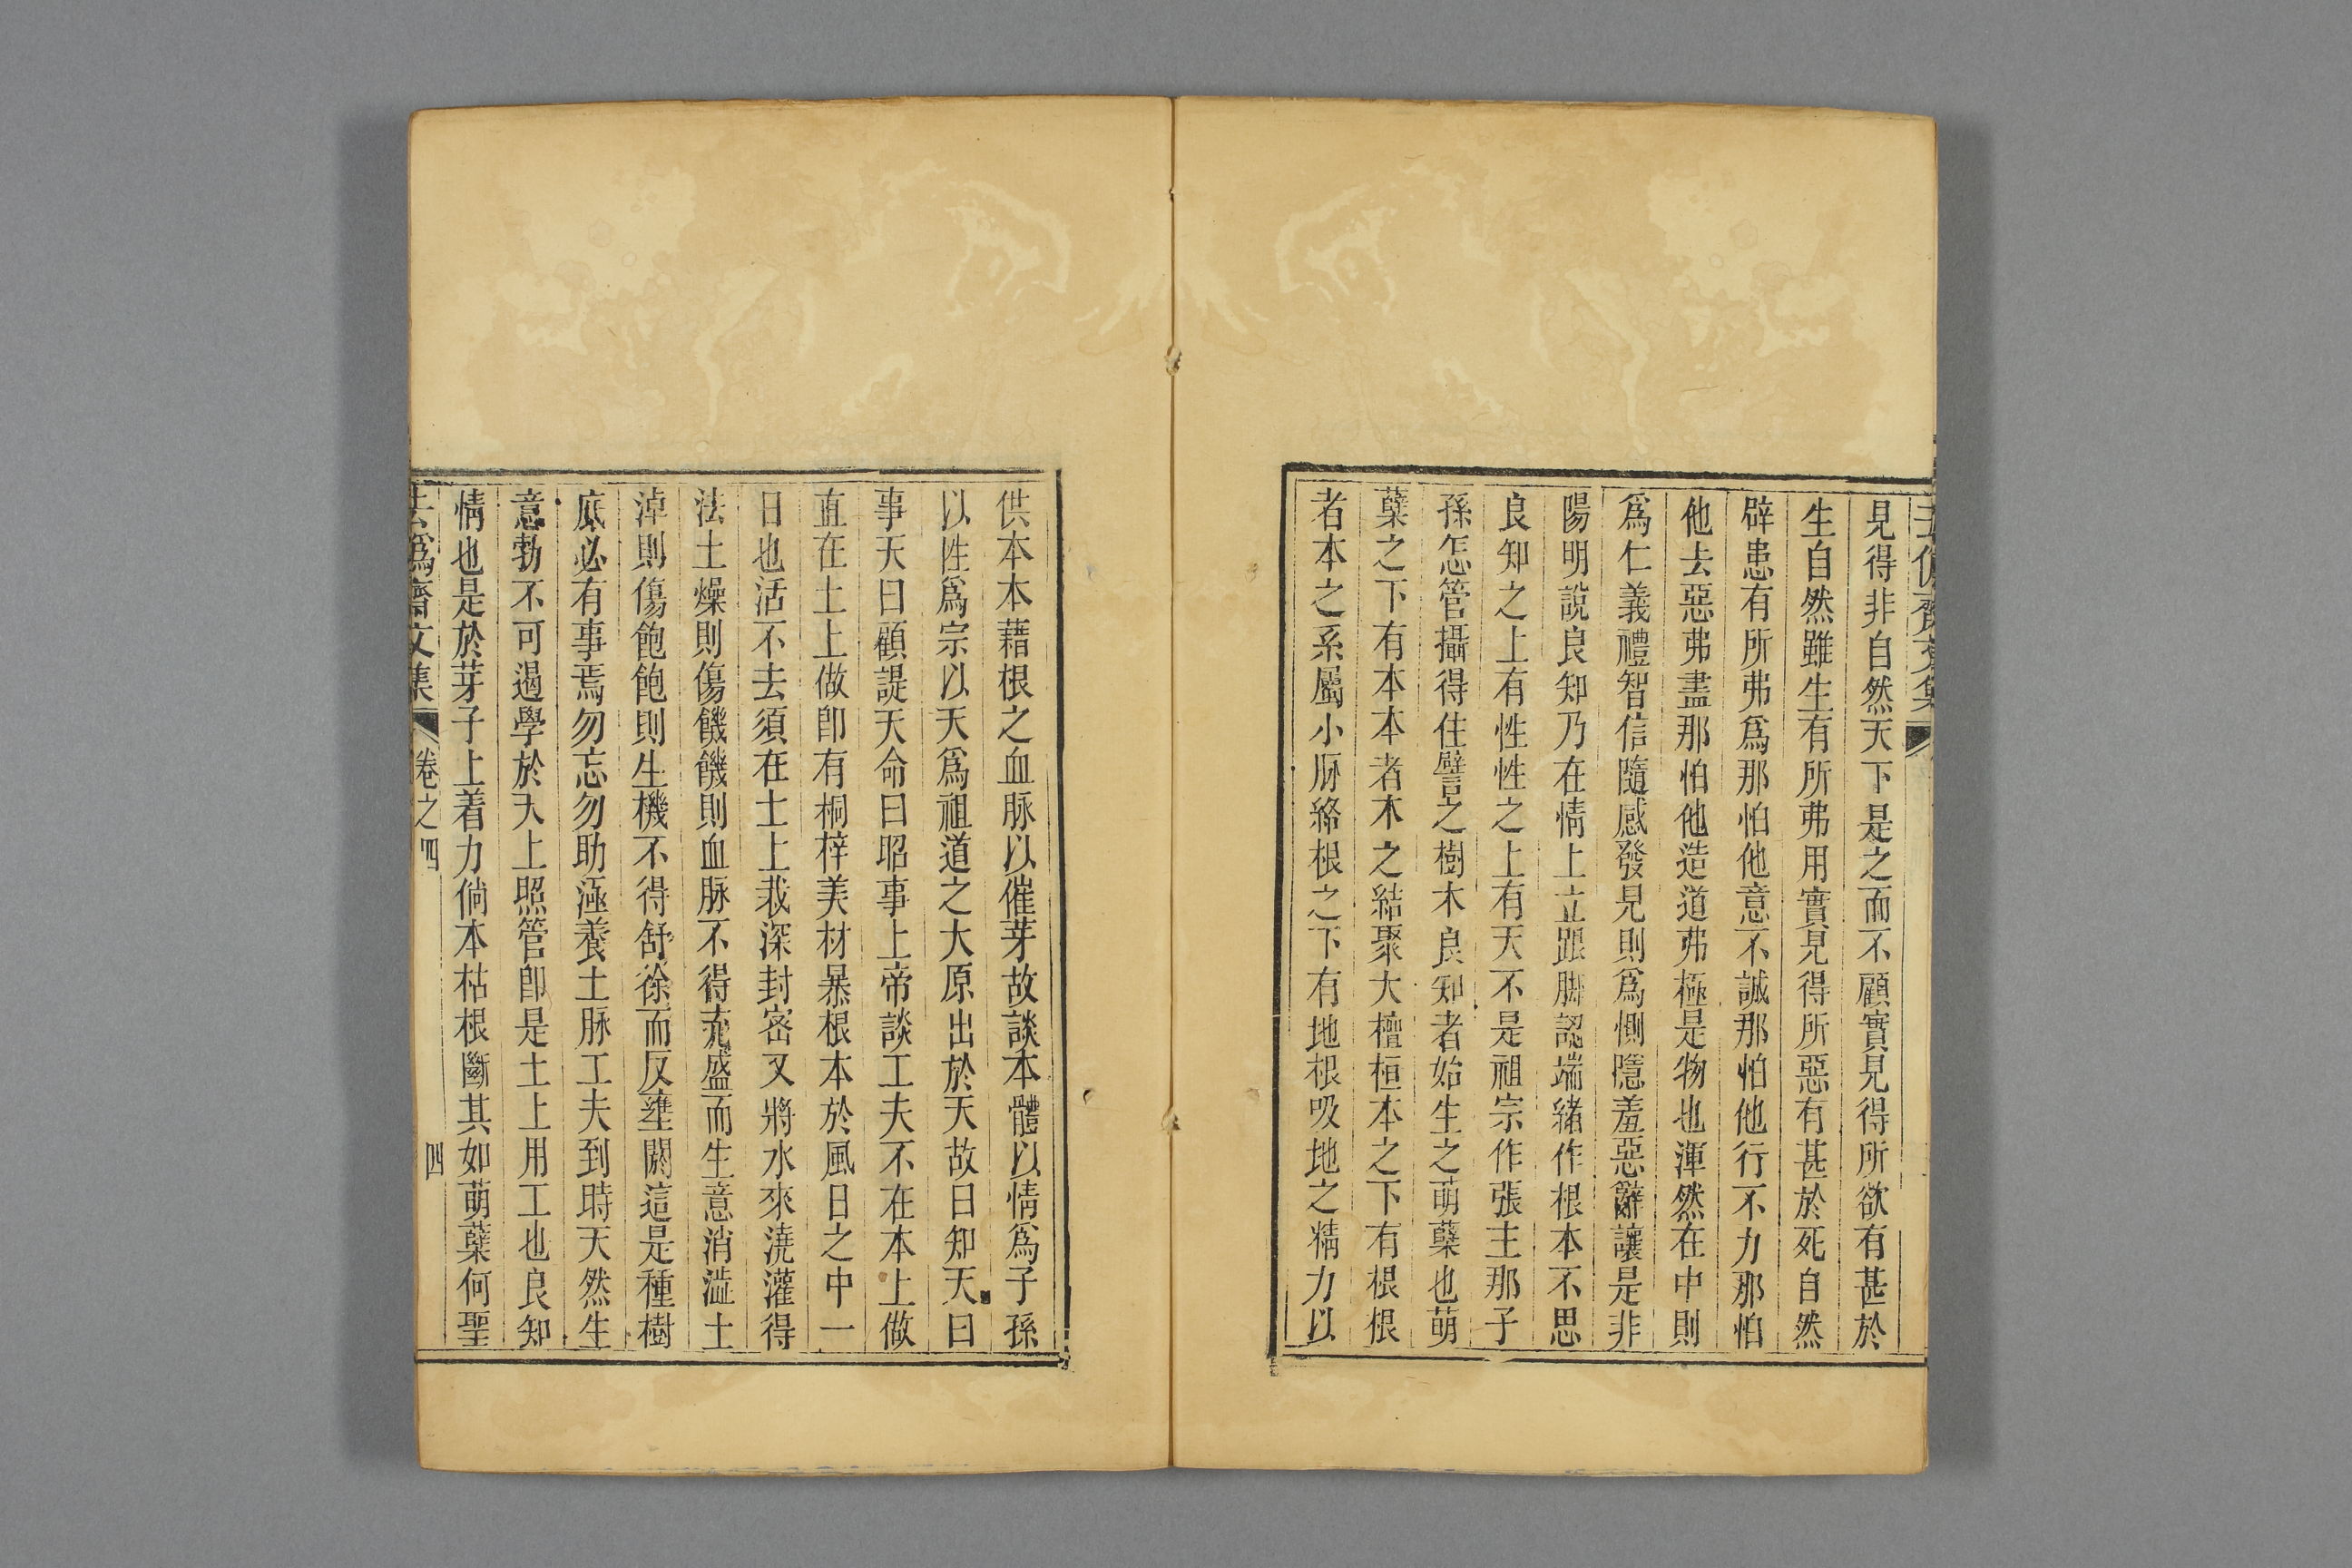 見得非自然天下是之而不顧實見得所欲有甚於
生自然雖生有所弗用實見得所惡有甚於死自然
辟患有所弗爲那怕他意不誠那怕他行不力那怕
他去惡弗盡那怕他造道弗極是物也渾然在中則
爲仁義禮智信隨感發見則爲惻隱羞惡辭讓是非
陽明說良知乃在情上立跟脚認端緒作根本不思
良知之上有性性之上有天不是祖宗作張主那子
孫怎管攝得住譬之樹木良知者始生之萌蘖也萌
蘖之下有本本者木之結聚大檀桓本之下有根根
者本之系屬小脉絡根之下有地根吸地之精力以
供本本藉根之血脉以催芽故談本體以情爲子孫
以性爲宗以天爲祖道之大原出於天故曰知天曰
事天曰顧諟天命曰昭事上帝談工夫不在本上做
直在土上做卽有桐梓美材暴根本於風日之中一
日也活不去須在土上栽深封密又將水來澆灌得
法土燥則傷饑饑則血脉不得充盛而生意消澁土
淖則傷飽飽則生機不得舒徐而反壅閼這是種樹
底必有事焉勿忘勿助涵養土脉工夫到時天然生
意勃不可遏學於天上照管卽是土上用工也良知
情也是於芽子上着力倘本枯根斷其如萌蘖何聖
去僞齋文集 卷之四 四